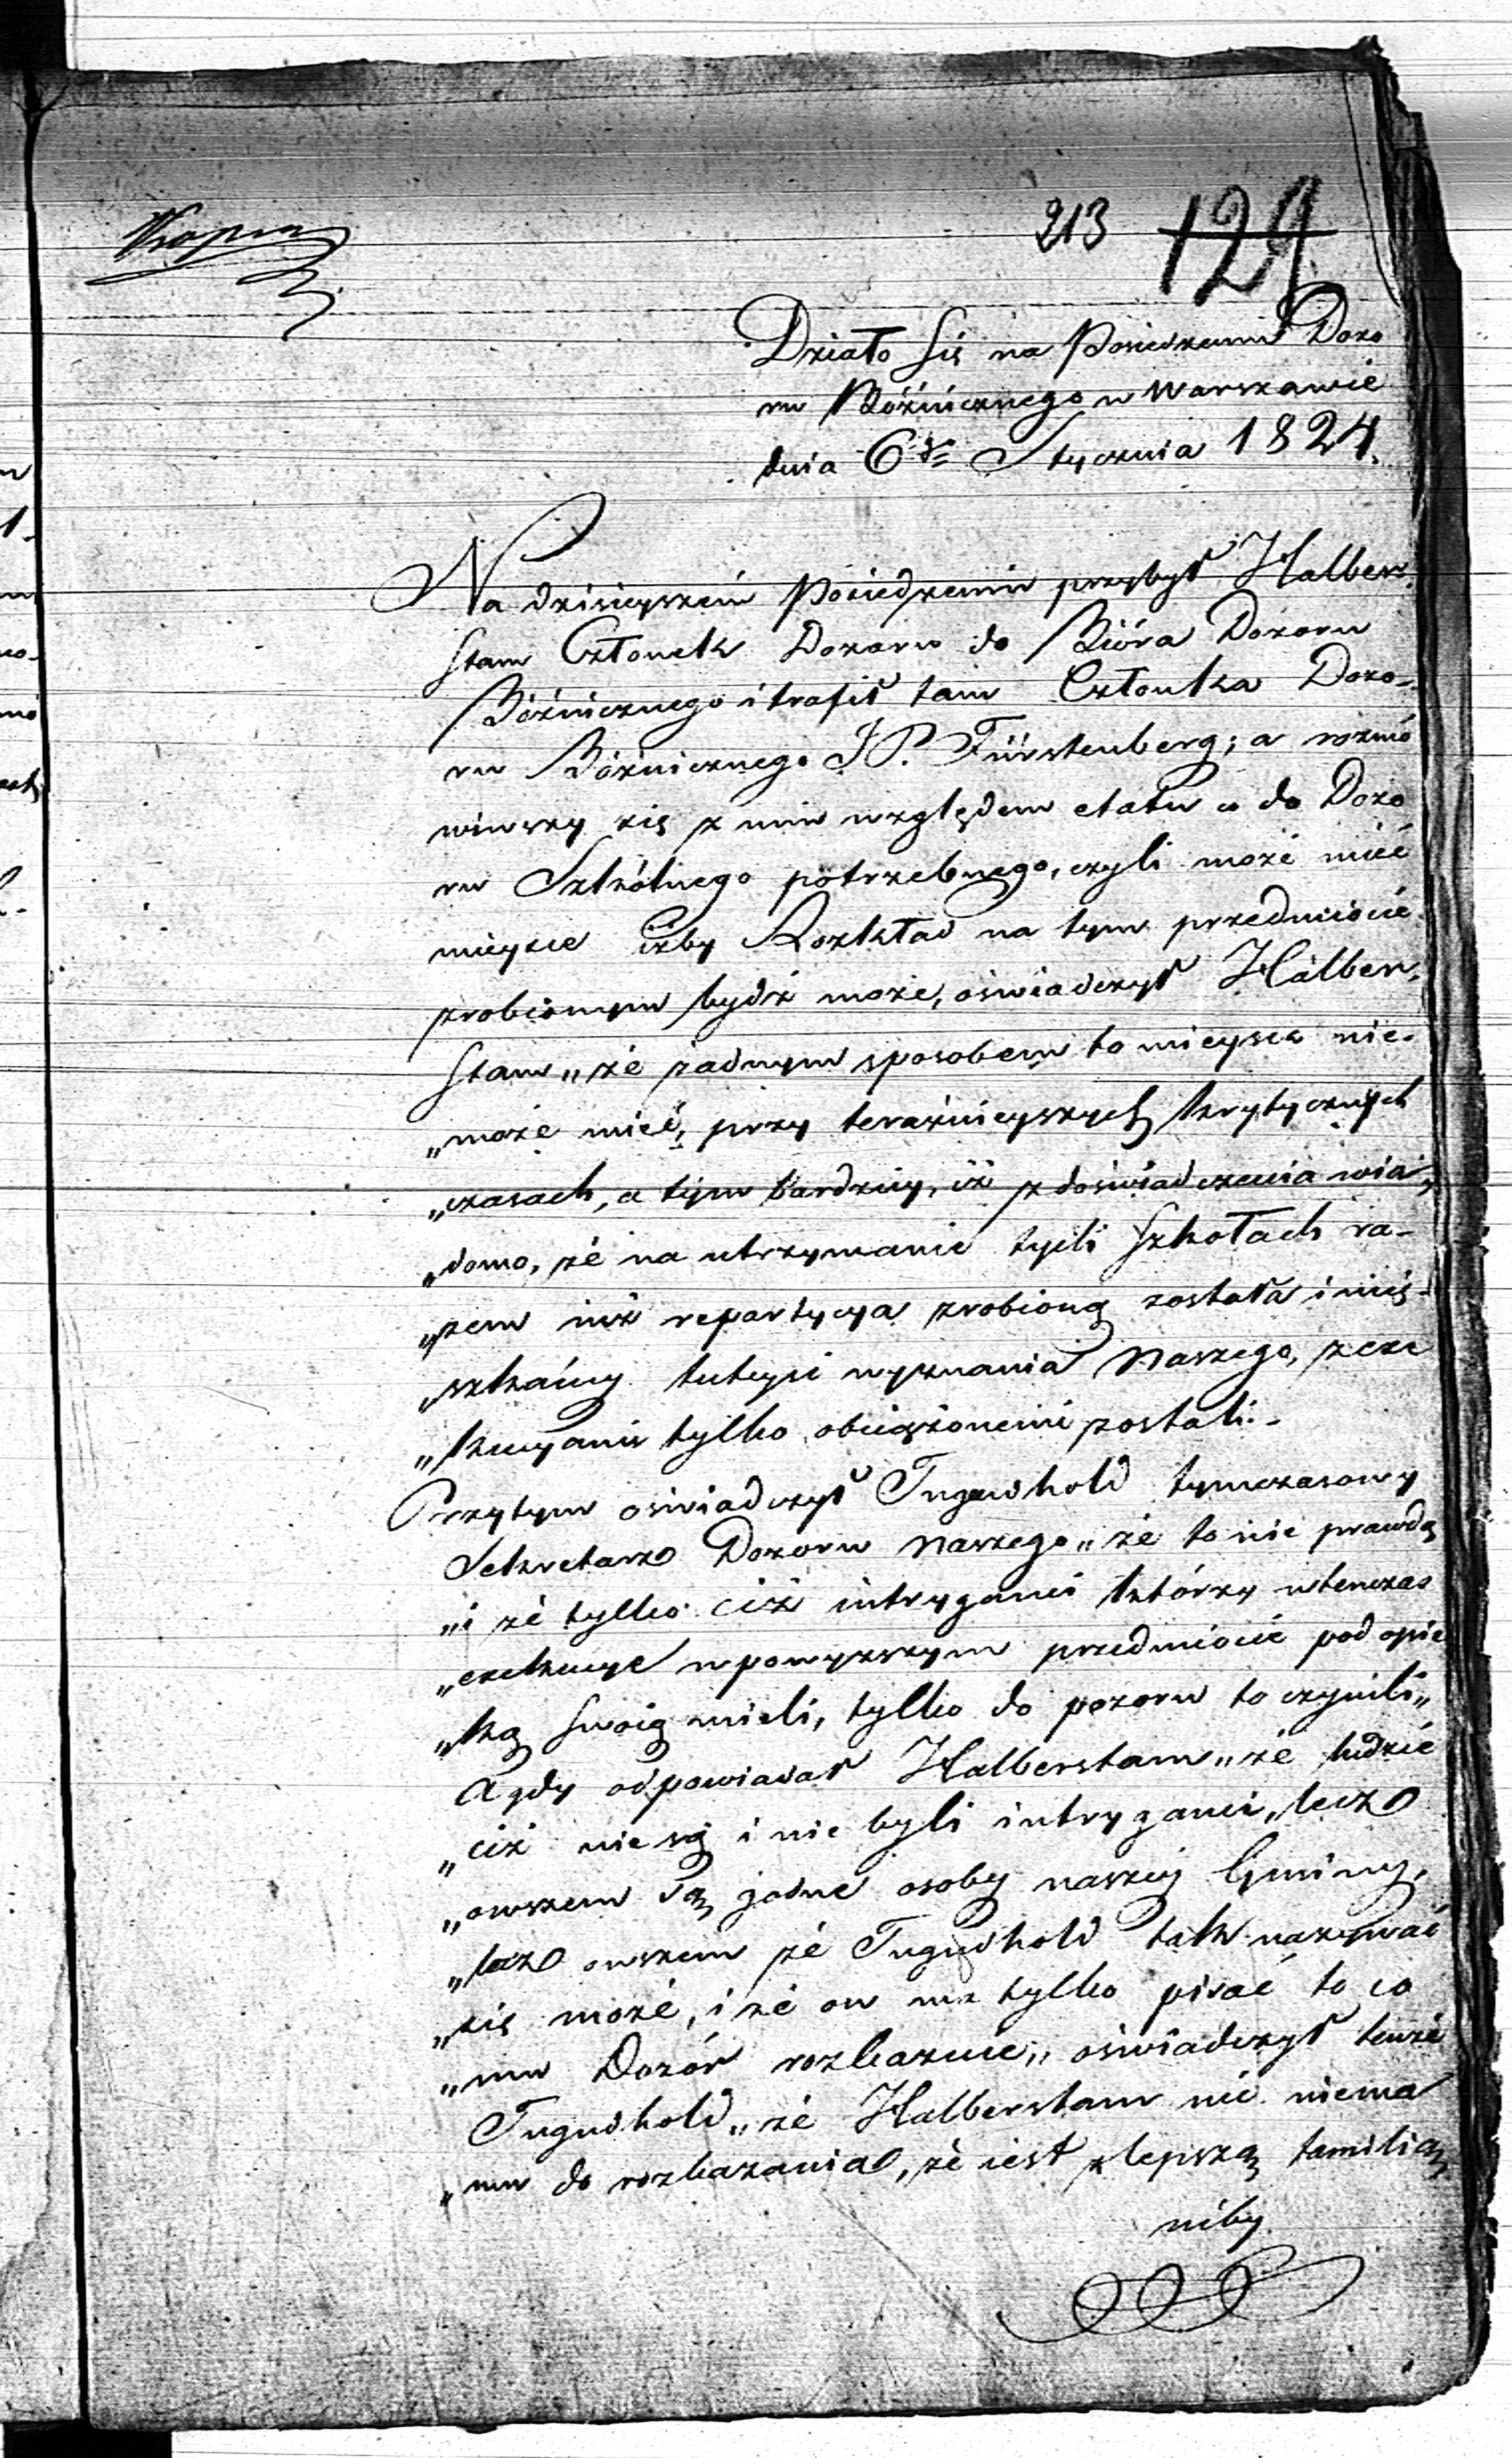 Kopia
213 124
Działo się na Posiedzeniu Dozo
ru Bóźniczego w Warszawie
dnia 6go Stycznia 1824.
Na dzisieyszém Posiedzeniu przybył Halber-
stam Członek Dozoru do Bióra Dozoru
Bóźnicznego i trafił tam Członka Dozo-
ru Bóźnicznego JP. Fürstenberg; a rozmó
wiwszy się z nim względem etatu co do Dozo
ru Szkólnego potrzebnego, czyli może mieć
mieysce iżby Rozkład na tym przedmiocie
zrobionym bydź może, oświadczył Halber-
stam „że żadnym sposobem to mieysca nie-
„może mieć, przy teraźnieyszych krytycznych
„czasach, a tym bardziey, iż z doświadczenia wia-
„domo, że na utrzymanie tych Szkołach ra-
„zem iuż repartycya zrobioną została i mie-
„szkańcy tuteysi wyznania Naszego, z exe
„kucyami tylko obciążonemi zostali.-
Przytym oświadczył Tugendhold tymczasowy
Sekretarz Dozoru Naszego „że to nie prawdą
„i że tylko ciż intryganci którzy wtenczas
„exekucye w powyższym przedmiocie pod opie
„ką swoią mieli, tylko do pozoru to czynili„
A gdy odpowiadał Halberstam „że ludzie
„ciż nie są i nie byli intryganci, lecz
„owszem są godne osoby naszey Gminy,
„lecz owszem że Tugendhold tak nazywać
„się może, i że on ma tylko pisać to co
„mu Dozór rozkazuie„ oświadczył tenże
Tugendhold „że Halberstam nic niema
„mu do rozkazania, że iest z lepszą familią
niby